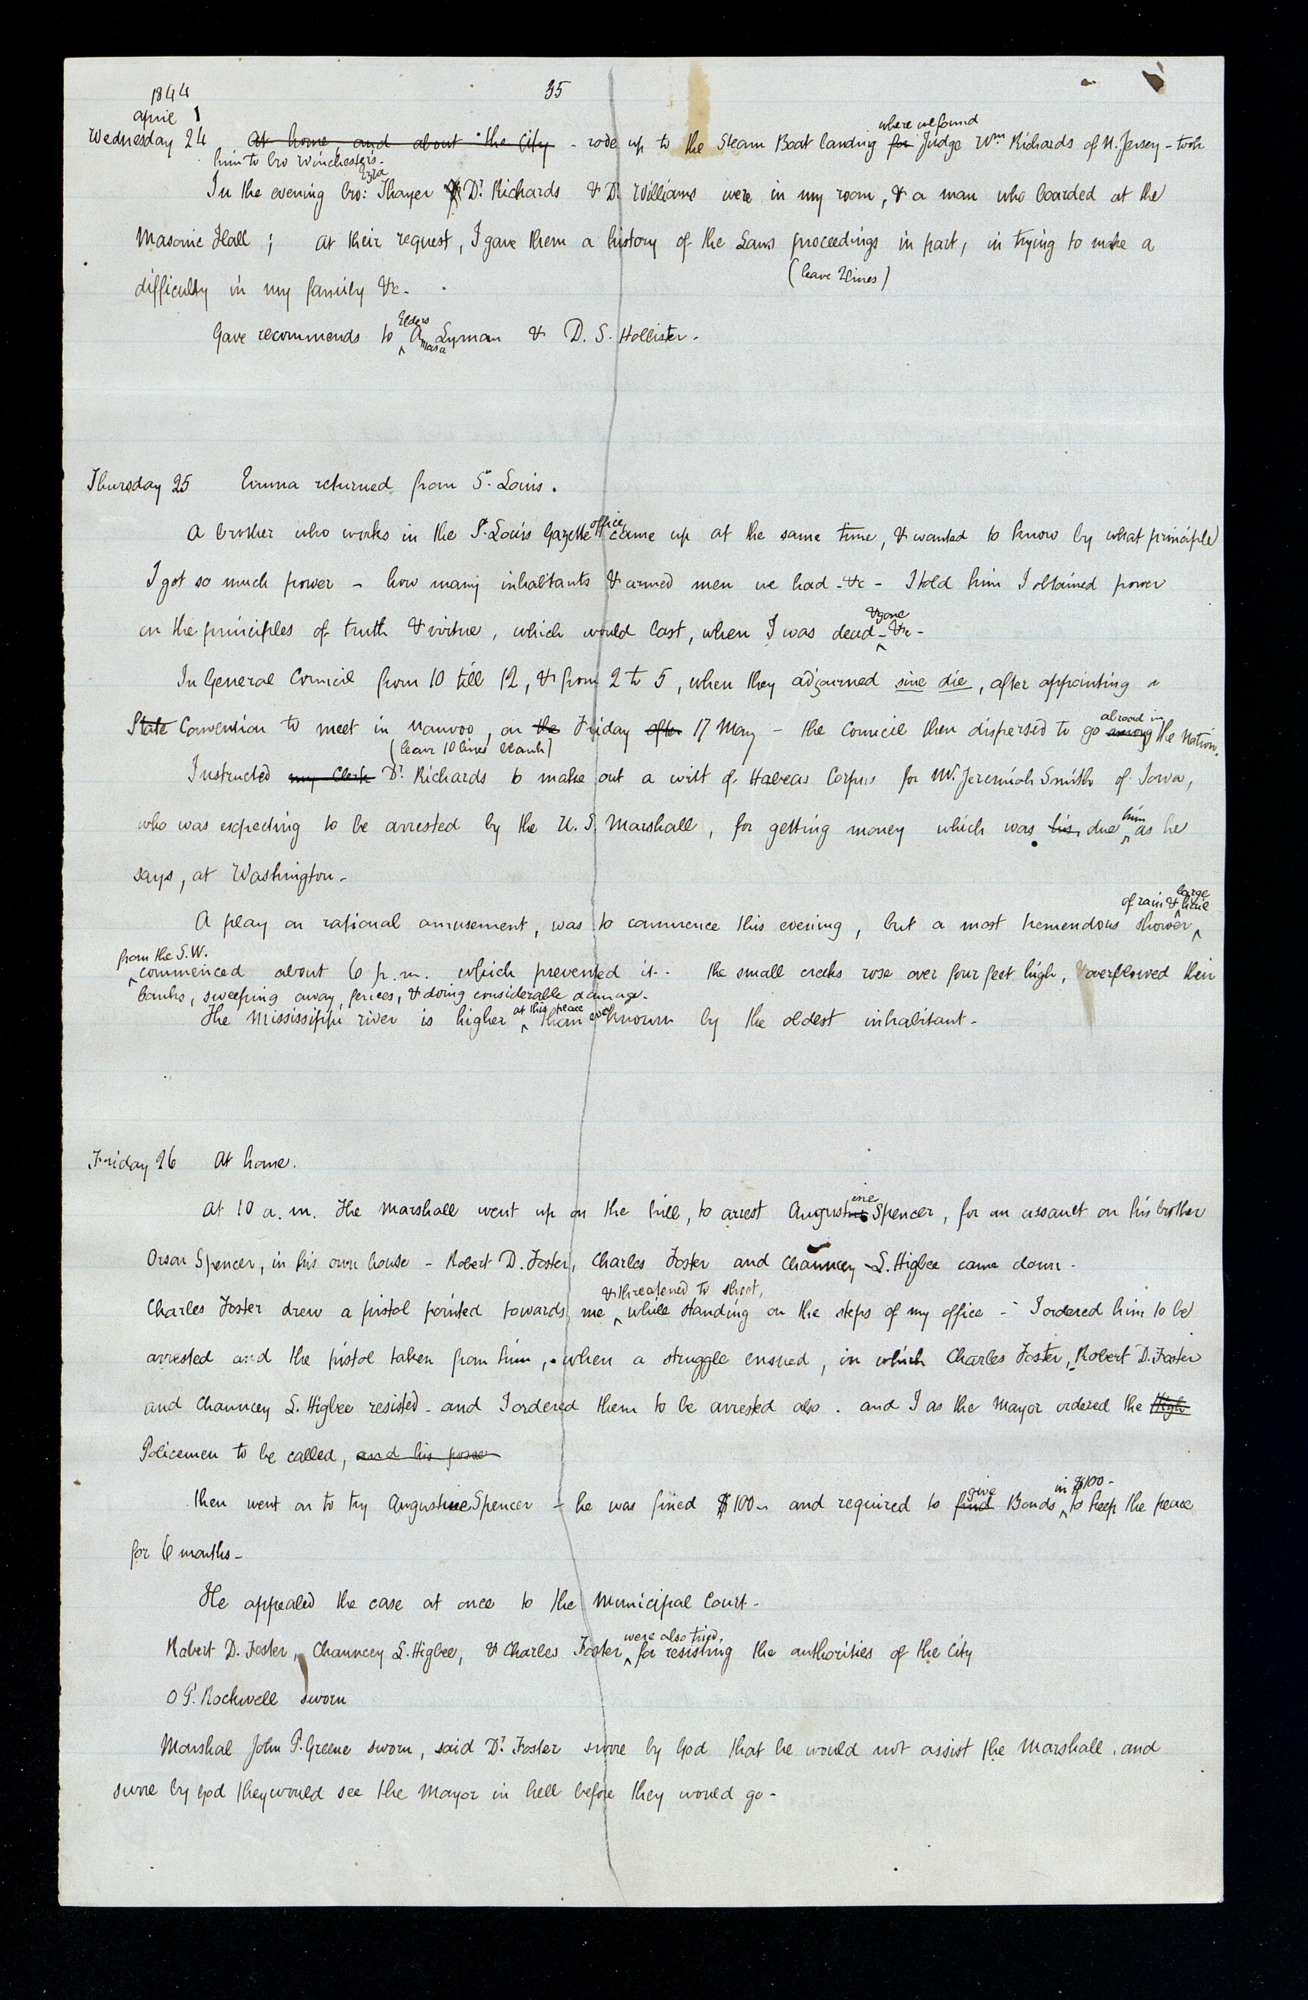 1844
35
april
where we found
Wednesday 24 at home, and about the City - rode up to the Steam Boat landing for Judge Wm Richards of N. Jersey - took
him to bro Winchesters.
Ezra
In the evening bro: Thayer & Dr Richards & Dr Williams were in my room, & a man who boarded at the
Masonic Hall; at their request, I gave them a history of the Laws proceedings in part, in trying to make a
(leave 2 lines)
difficulty in my family &c.
Elders
Gave recommends to Amasa Lyman & D. S. Hollister.
Thursday 25 Emma returned from St. Louis.
office
A brother who works in the St. Louis Gazette came up at the same time, & wanted to know by what principle
I got so much power - how many inhabitants & armed men we had - &c - I told him I obtained power
& gone
on the principles of truth & virtue, which would last, when I was dead - &c -
In General Council from 10 till 12, & from 2 to 5, when they adjourned sine die, after appointing a
abroad in
State Convention to meet in Nauvoo, on the Friday after 17 May - the Council then dispersed to go among the Nation.
(leave 10 lines blank)
Instructed my Clerk Dr Richards to make out a writ of Habeas Corpus for Mr. Jeremiah Smith of Iowa,
him
who was expecting to be arrested by the U. S. Marshall, for getting money which was his due as he
says, at Washington -
large
of rain & hail
A play on rational amusement, was to commence this evening, but a most tremendous shower
from the S.W.
commenced about 6 p.m. which prevented it. the small creeks rose over four feet high, & overflowed their
banks, sweeping away fences, & doing considerable damage.
at this place
The Mississippi river is higher than ever known by the oldest inhabitant -
Friday 26 At home.
ine
At 10 a.m. the Marshall went up on the hill, to arrest August Spencer, for an assault on his brother
Orson Spencer, in his own house - Robert D. Foster, Charles Foster and Chauncey L. Higbee came down -
& threatened to shoot,
Charles Foster drew a pistol pointed towards me while standing on the steps of my office - I ordered him to be
arrested and the pistol taken from him, when a struggle ensued, in which Charles Foster, Robert D. Foster
and Chauncey L. Higbee resisted - and I ordered them to be arrested also. and I as the Mayor ordered the High
Policemen to be called, and his posse
give
in $100 -
then went on to try Augustine Spencer - he was fined $100 - and required to find Bonds to keep the peace
for 6 months -
He appealed the case at once to the Municipal Court -
were also tried,
Robert D. Foster, Chauncey L. Higbee, & Charles Foster for resisting the authorities of the City
O P. Rockwell sworn
Marshal John P. Greene sworn, said Dr Foster swore by God that he would not assist the Marshall, and
swore by God they would see the Mayor in hell before they would go -